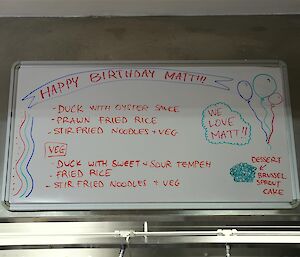 HAPPY BIRTHDAY MATT!!!
- DUCK WITH OYSTER SAUCE
- PRAWN FRIED RICE
- STIR FRIED NOODLES + VEG
WE
LOVE
MATT!!
VEG
- DUCK WITH SWEET + SOUR TEMPEH
- FRIED RICE
- STIR FRIED NOODLES + VEG
DESSERT
BRUSSEL
SPROUT
CAKE